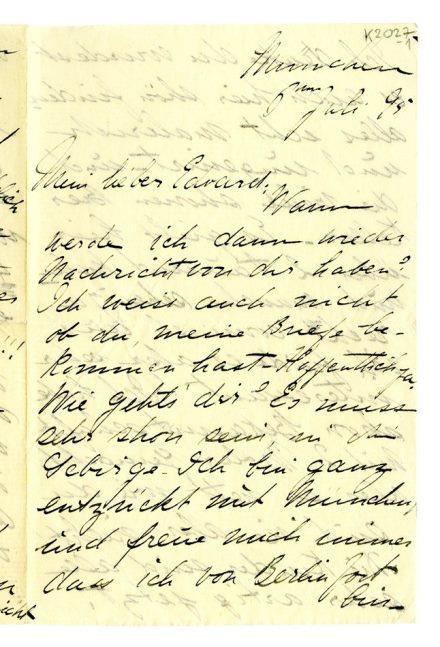 K2027
-1
München
Juli 95
Mein lieber Edvard.
Wann
werde ich dann wieder
Nachricht von dir haben?
Ich weiss auch nicht
ob du, meine Briefe be-
kommen hast - Hoffentlich ja.
Wie gehts dir? Es muss
sehr shon sein, in
Gebirge - Ich bin ganz
entzückt mit München,
und freue mich immer
dass ich von Berlin fort
bin -